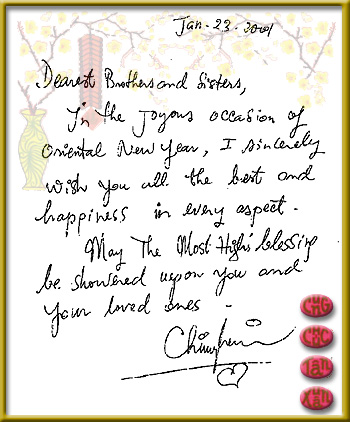 Jan. 23. 2001
Dearest Brothers and Sisters,
In the Joyous occasion of
Oriental New Year, I sincerely
wish you all the best and
happiness in every aspect.
May The Most High's blessing
be showered upon you and
your loved ones.
CUNG
CHUC
TAN
XUAN